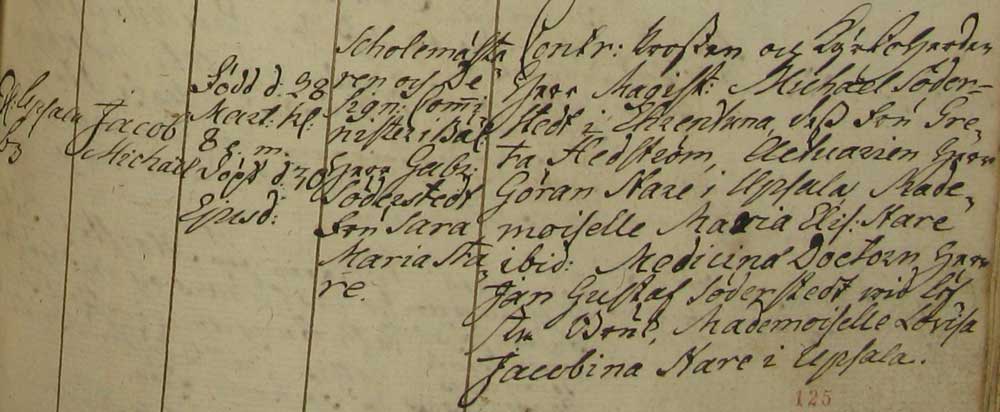 Upsala
Jacob
Michael
Född d: 28
Mart: kl:
8 e. m.
Döpt d: 30
Ejusd:
Scholemästa-
ren och De-
sign: Commi-
nister i Bäl:
Herr Gabr:
Söderstedt
fru Sara
Maria Ha-
re.
Contr: Prosten och Kyrkoherden
Herr Magist: Michael Söder-
stedt i Ekrentuna, dess fru Gre-
ta Hedström, Actuarien Herr
Göran Hare i Upsala, Made-
moiselle Maria Elis: Hare
ibid: Medicinæ Doctorn Herr
Jan Gustaf Söderstedt wid
Bruk, Mademoiselle Lovisa
Jacobina Hare i Upsala.
125